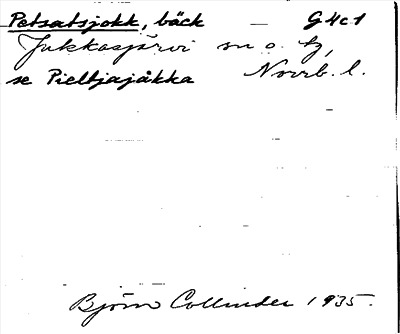 Petsatsjokk, bäck — G4c1
Jukkasjärvi sn o. tg,
se Pieltjajåkka Norrb. l.
Björn Collinder 1935.